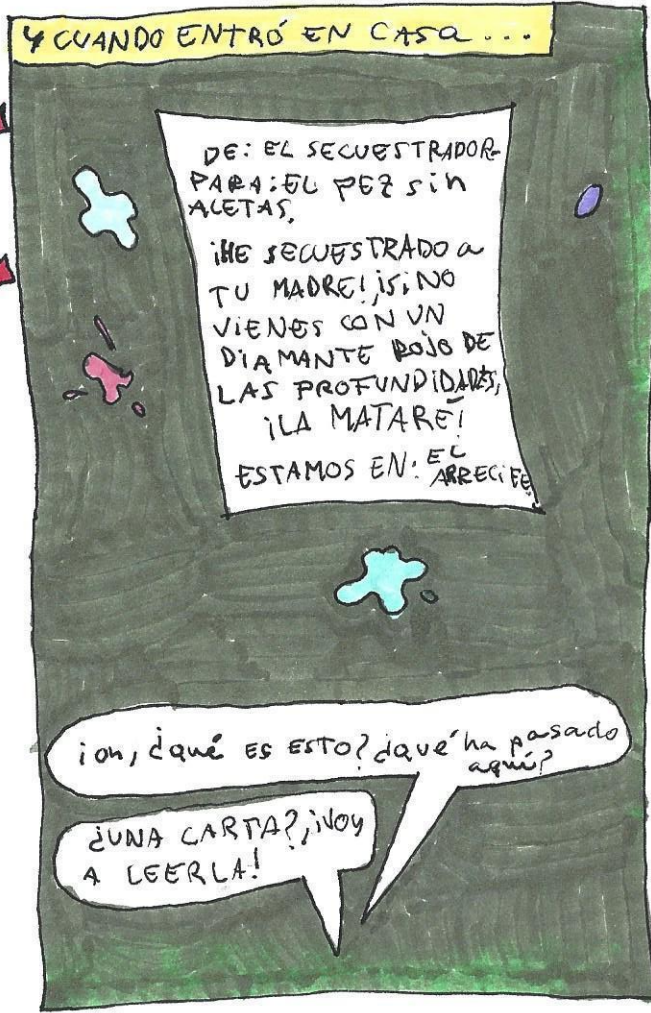 Y CUANDO ENTRÓ EN CASA...
DE: EL SECUESTRADOR-
PARA: EL PEZ sin
ALETAS.
¡HE SECUESTRADO a
TU MADRE! ¡Si NO
ViENES CON UN
DIAMANTE ROJO DE
LAS PROFUNDIDADES,
¡LA MATARÉ!
ESTAMOS EN: EL
ARRECiFE
¡oh, ¿qué ES ESTO? ¿qué ha pasado
aquí?
¿UNA CARTA?, ¡VOY
A LEERLA!